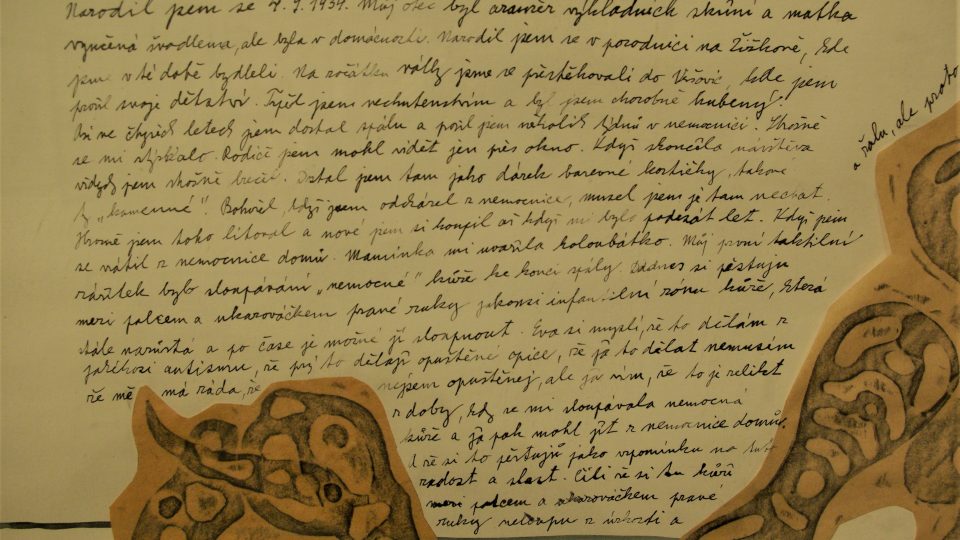 Narodil jsem se 4. 9. 1934. Můj otec byl aranžér výkladních skříní a matka
vyučená švadlena, ale byla v domácnosti. Narodil jsem se v porodnici na Žižkově, kde
jsme v té době bydleli. Na začátku války jsme se přestěhovali do Vršovic, kde jsem
prožil svoje dětství. Trpěl jsem nechutenstvím a byl jsem chorobně hubený.
Asi ve čtyřech letech jsem dostal spálu a pobyl jsem několik týdnů v nemocnici. Hrozně
se mi stýskalo. Rodiče jsem mohl vidět jen přes okno. Když skončila návštěva
vždycky jsem hrozně brečel. Dostal jsem tam jako dárek barevné kostičky, takové
ty „kamenné“. Bohužel, když jsem odcházel z nemocnice, musel jsem je tam nechat.
Hrozně jsem toho litoval a nové jsem si koupil až když mi bylo padesát let. Když jsem
se vrátil z nemocnice domů. Maminka mi uvařila holoubátko. Můj první taktilní
zážitek bylo sloupávání „nemocné“ kůže ke konci spály. Dodnes si pěstuju
mezi palcem a ukazováčkem pravé ruky jakousi infantilní zónu kůže, která
stále narůstá a po čase je možné ji sloupnout. Eva si myslí, že to dělám z
jakéhosi autismu, že prý to dělají opuštěné opice, že já to dělat nemusím
že mě má ráda, že nejsem opuštěnej, ale já vím, že to je relikt
z doby, kdy se mi sloupávala nemocná
kůže a já pak mohl jít z nemocnice domů.
A že si to pěstuju jako vzpomínku na tuto
radost a slast. Čili že si tu kůži
mezi palcem a ukazováčkem pravé
ruky neloupu z úzkosti a
a žalu, ale proto